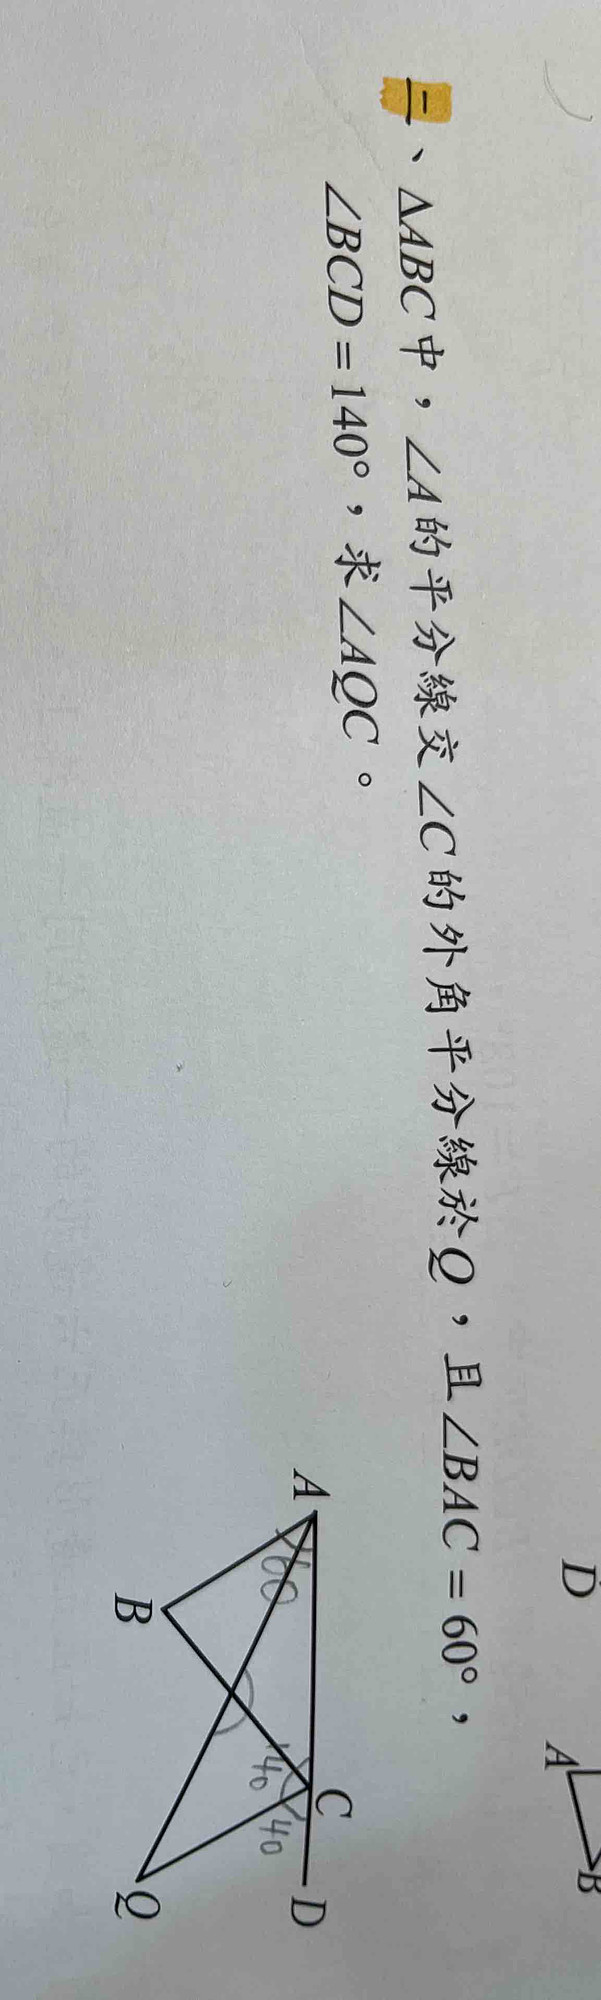 二、△ABC中，∠A的平分線交∠C的外角平分線於Q，且∠BAC=60°，
∠BCD=140°，求∠AQC。
D
A
B
A
60
B
C
140
40
D
Q